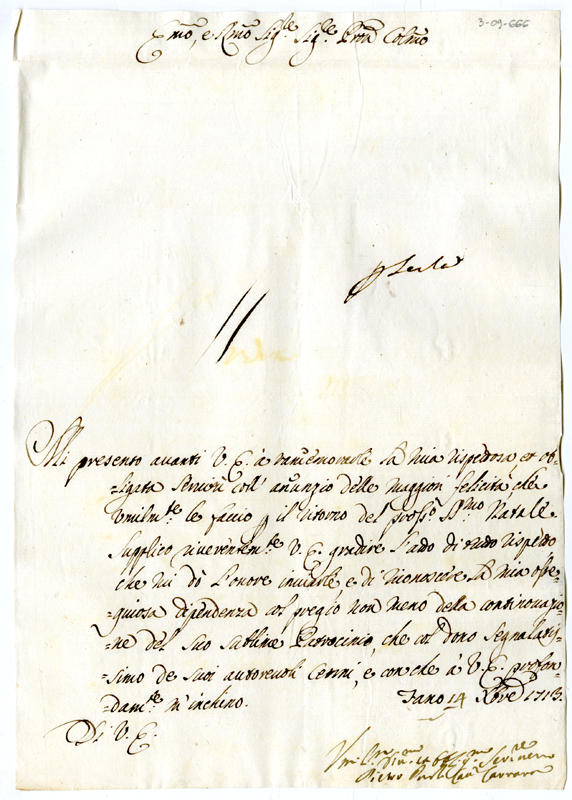 3-09-666
Em̃o, e Rm̃o Sig.re Sig.re Prõn Colm̃o
Mi presento auanti V. E. à ramemorarle la mia rispettosa, et ob-
-ligata Seruitù coll' anunzio delle maggiori felicità, che
Vmilm.te le faccio p il ritorno del pross.o SS.mo Natale
Supplico riuerentem.te V. E. gradire l'atto di rispetto
che mi dò l'onore inuiarle, e di riconoscere la mia osse-
-quiosa dipendenza col pregio non meno della continouazio-
-ne del Suo Sublime Patrocinio, che col dono Segnalatis-
-simo de Suoi autoreuoli Cenni, e con che à V. E. profon-
-dam.te m'inchino. Fano 14 Xbre 1713.
Di V. E.
Vm.
Pietro Carrara